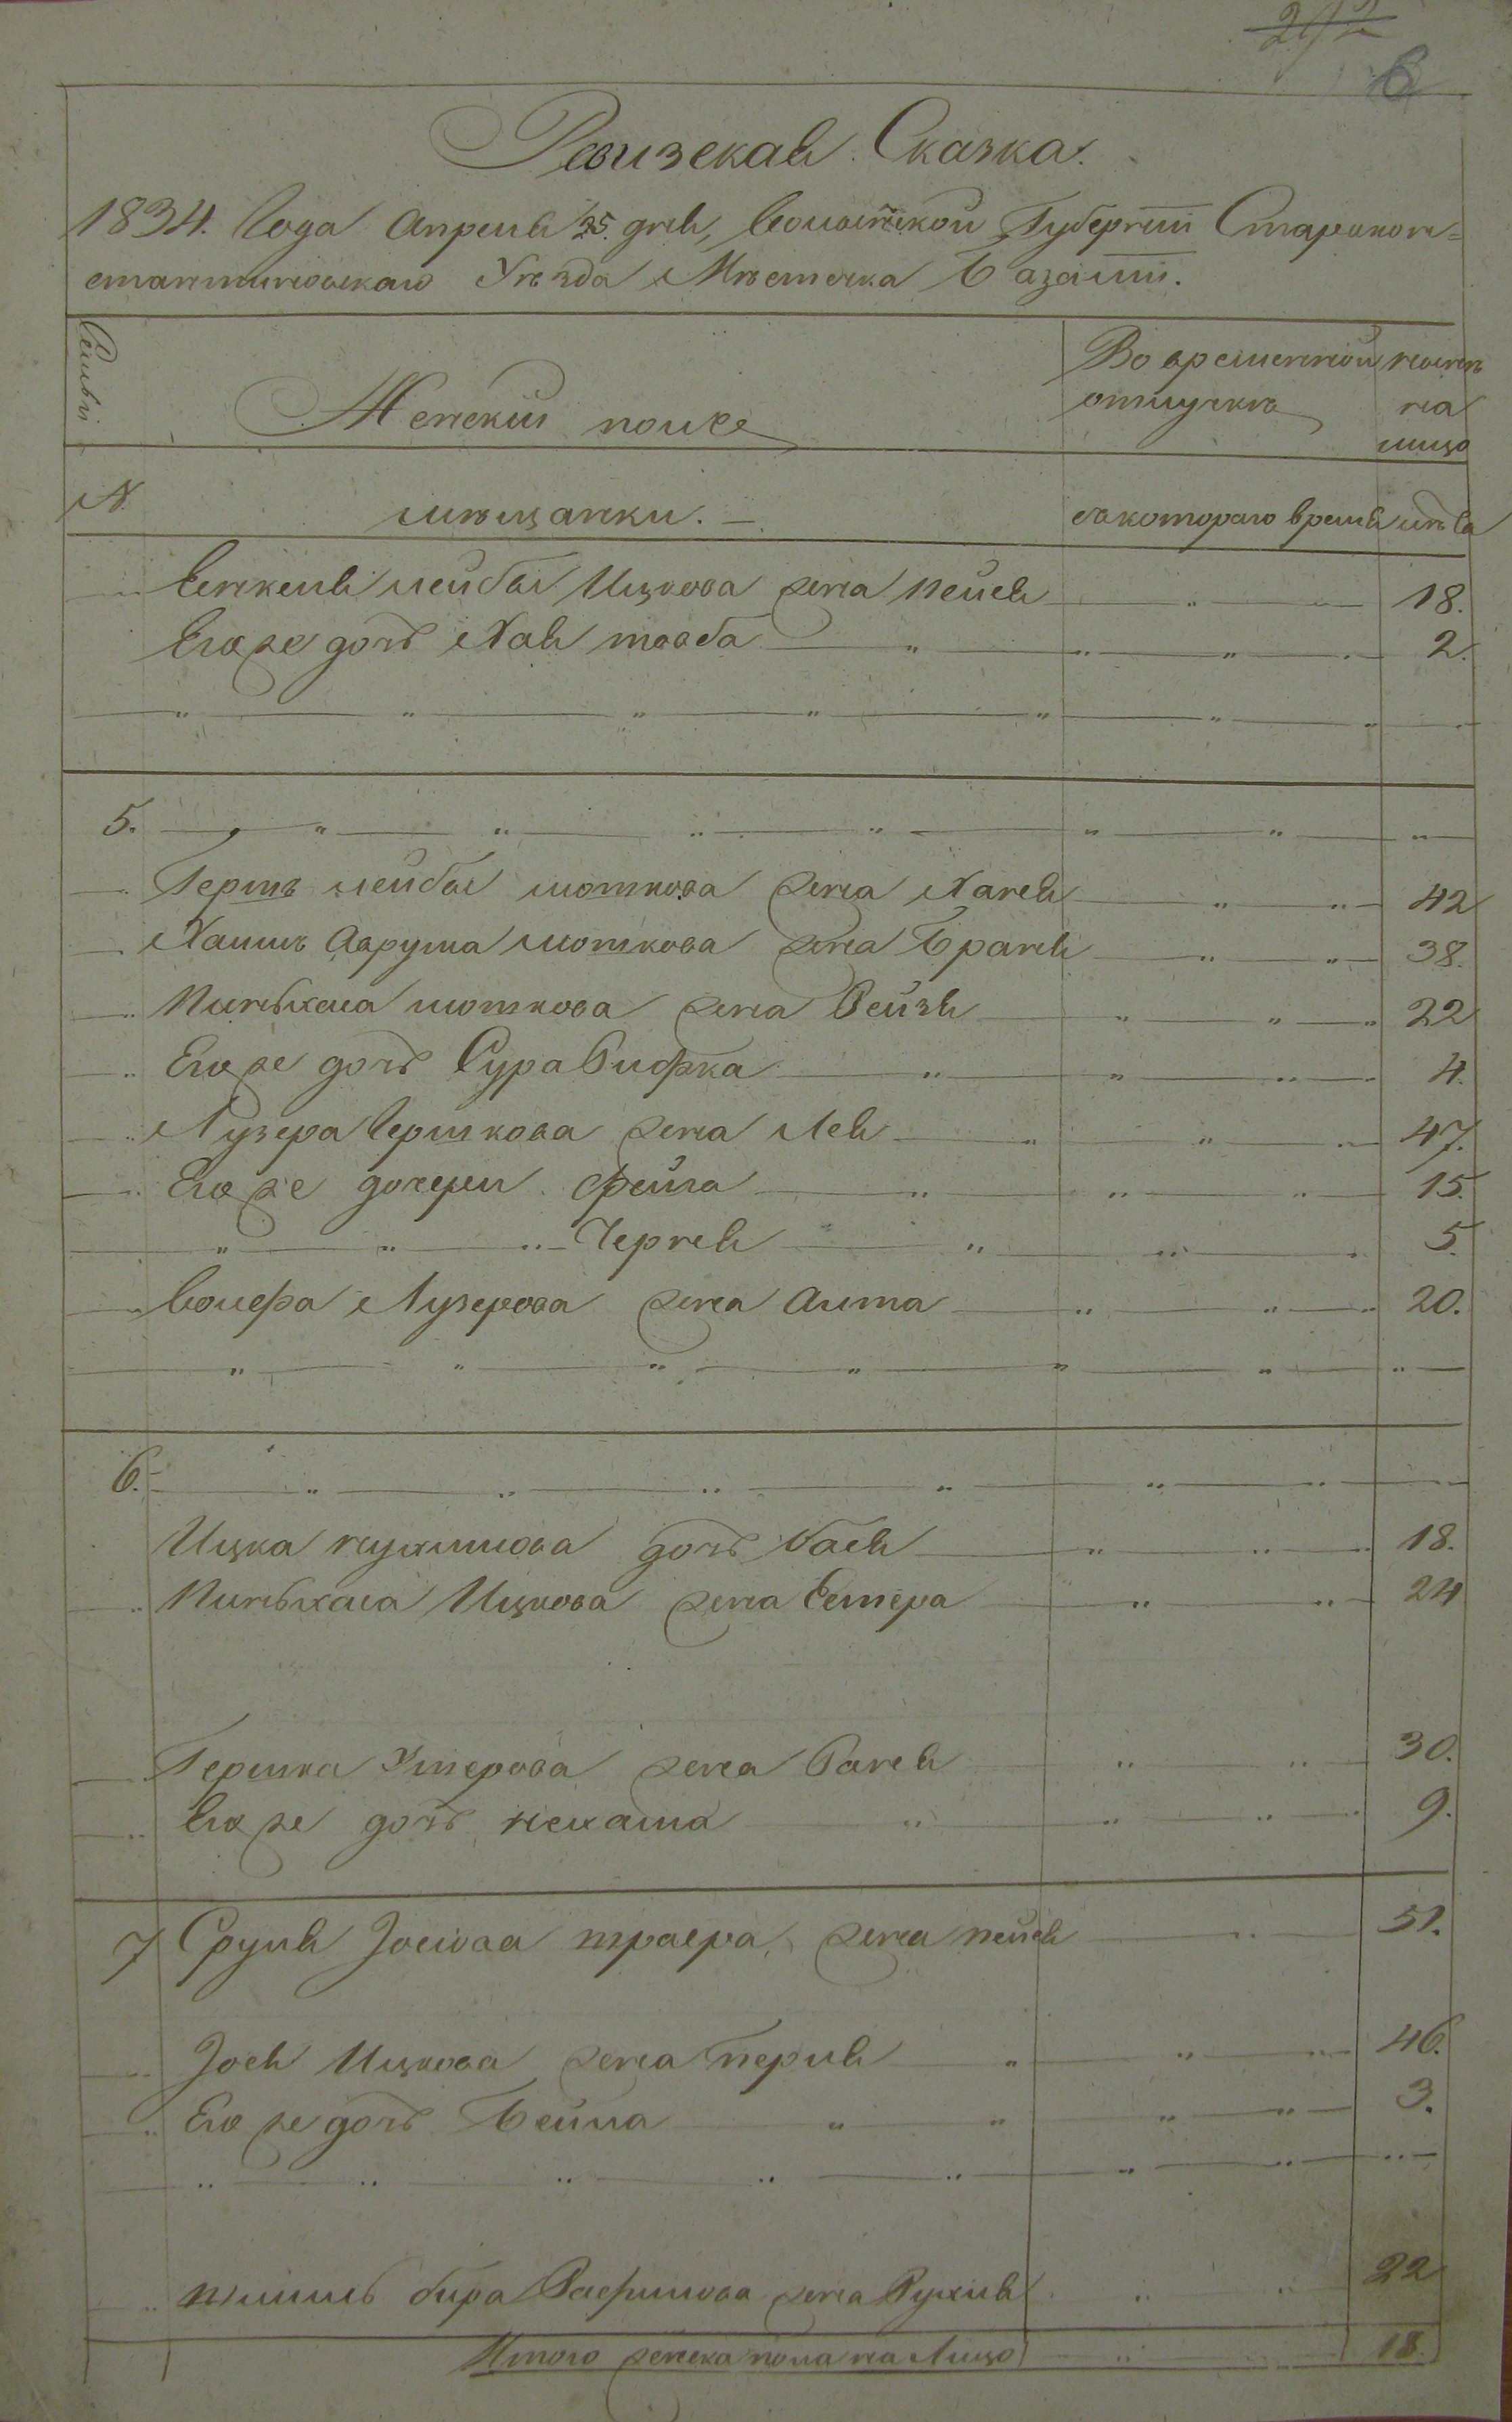 6
Ревизская Сказка.
1834. Года Апреля 25. дня, Волынской Губернии Старокон=
стантиновского Уѣзда Мѣстечка Базалии.
Семьи
Женский полъ
Во временной отлучкѣ
нынѣ на лицо
№
мѣщанки. —
съ котораго времяни
лѣта
Лейбы Ицкова жена Пейся 18.
Его же дочь Хая товба 2.
5.
Гершъ лейбы шоткова жена Ханея 42
Хаимъ Аврума шоткова жена Бранея 38.
Пиньхаса шоткова жена Рейзя 22
Его же дочь Сура Рифка 4.
Лузера Гершкова жена Лея 47.
Его же дочери Фейга 15.
Чернея 5.
Волфа Лузерова жена Аита 20.
6.
Ицка дочь бася 18.
Пиньхаса Ицкова жена Естера 24
Гершка Ушерова жена Ранея 30.
Его же дочь нехама 9.
7 Сруля Iосiова жена пейся 51.
Iося Ицкова жена перля 46.
Его же дочь Бейла 3.
жена Рухля 22
Итого женска пола на Лицо 18.